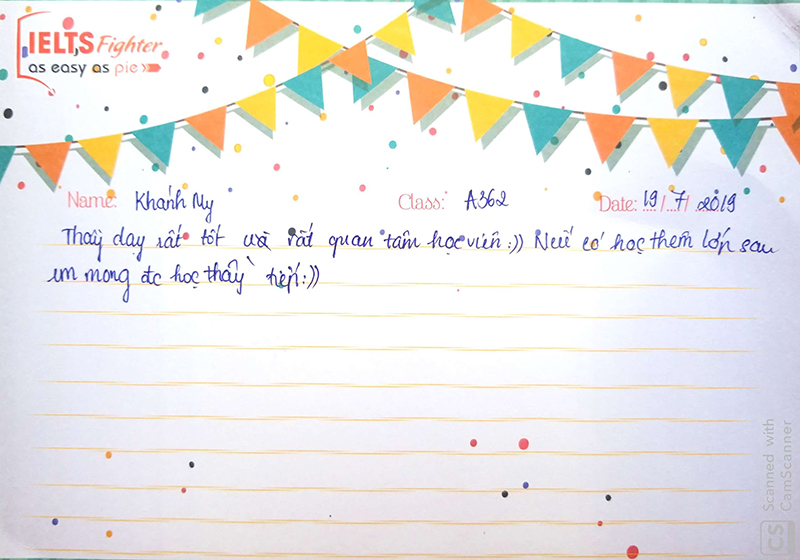 IELTS Fighter
as easy as pie
Name: Khánh My Class: A362 Date: 19/7/2019
Thầy dạy rất tốt và rất quan tâm học viên :)) Nếu có học thêm lớp sau
em mong đc học thầy tiếp :))
Scanned with
CamScanner
CS